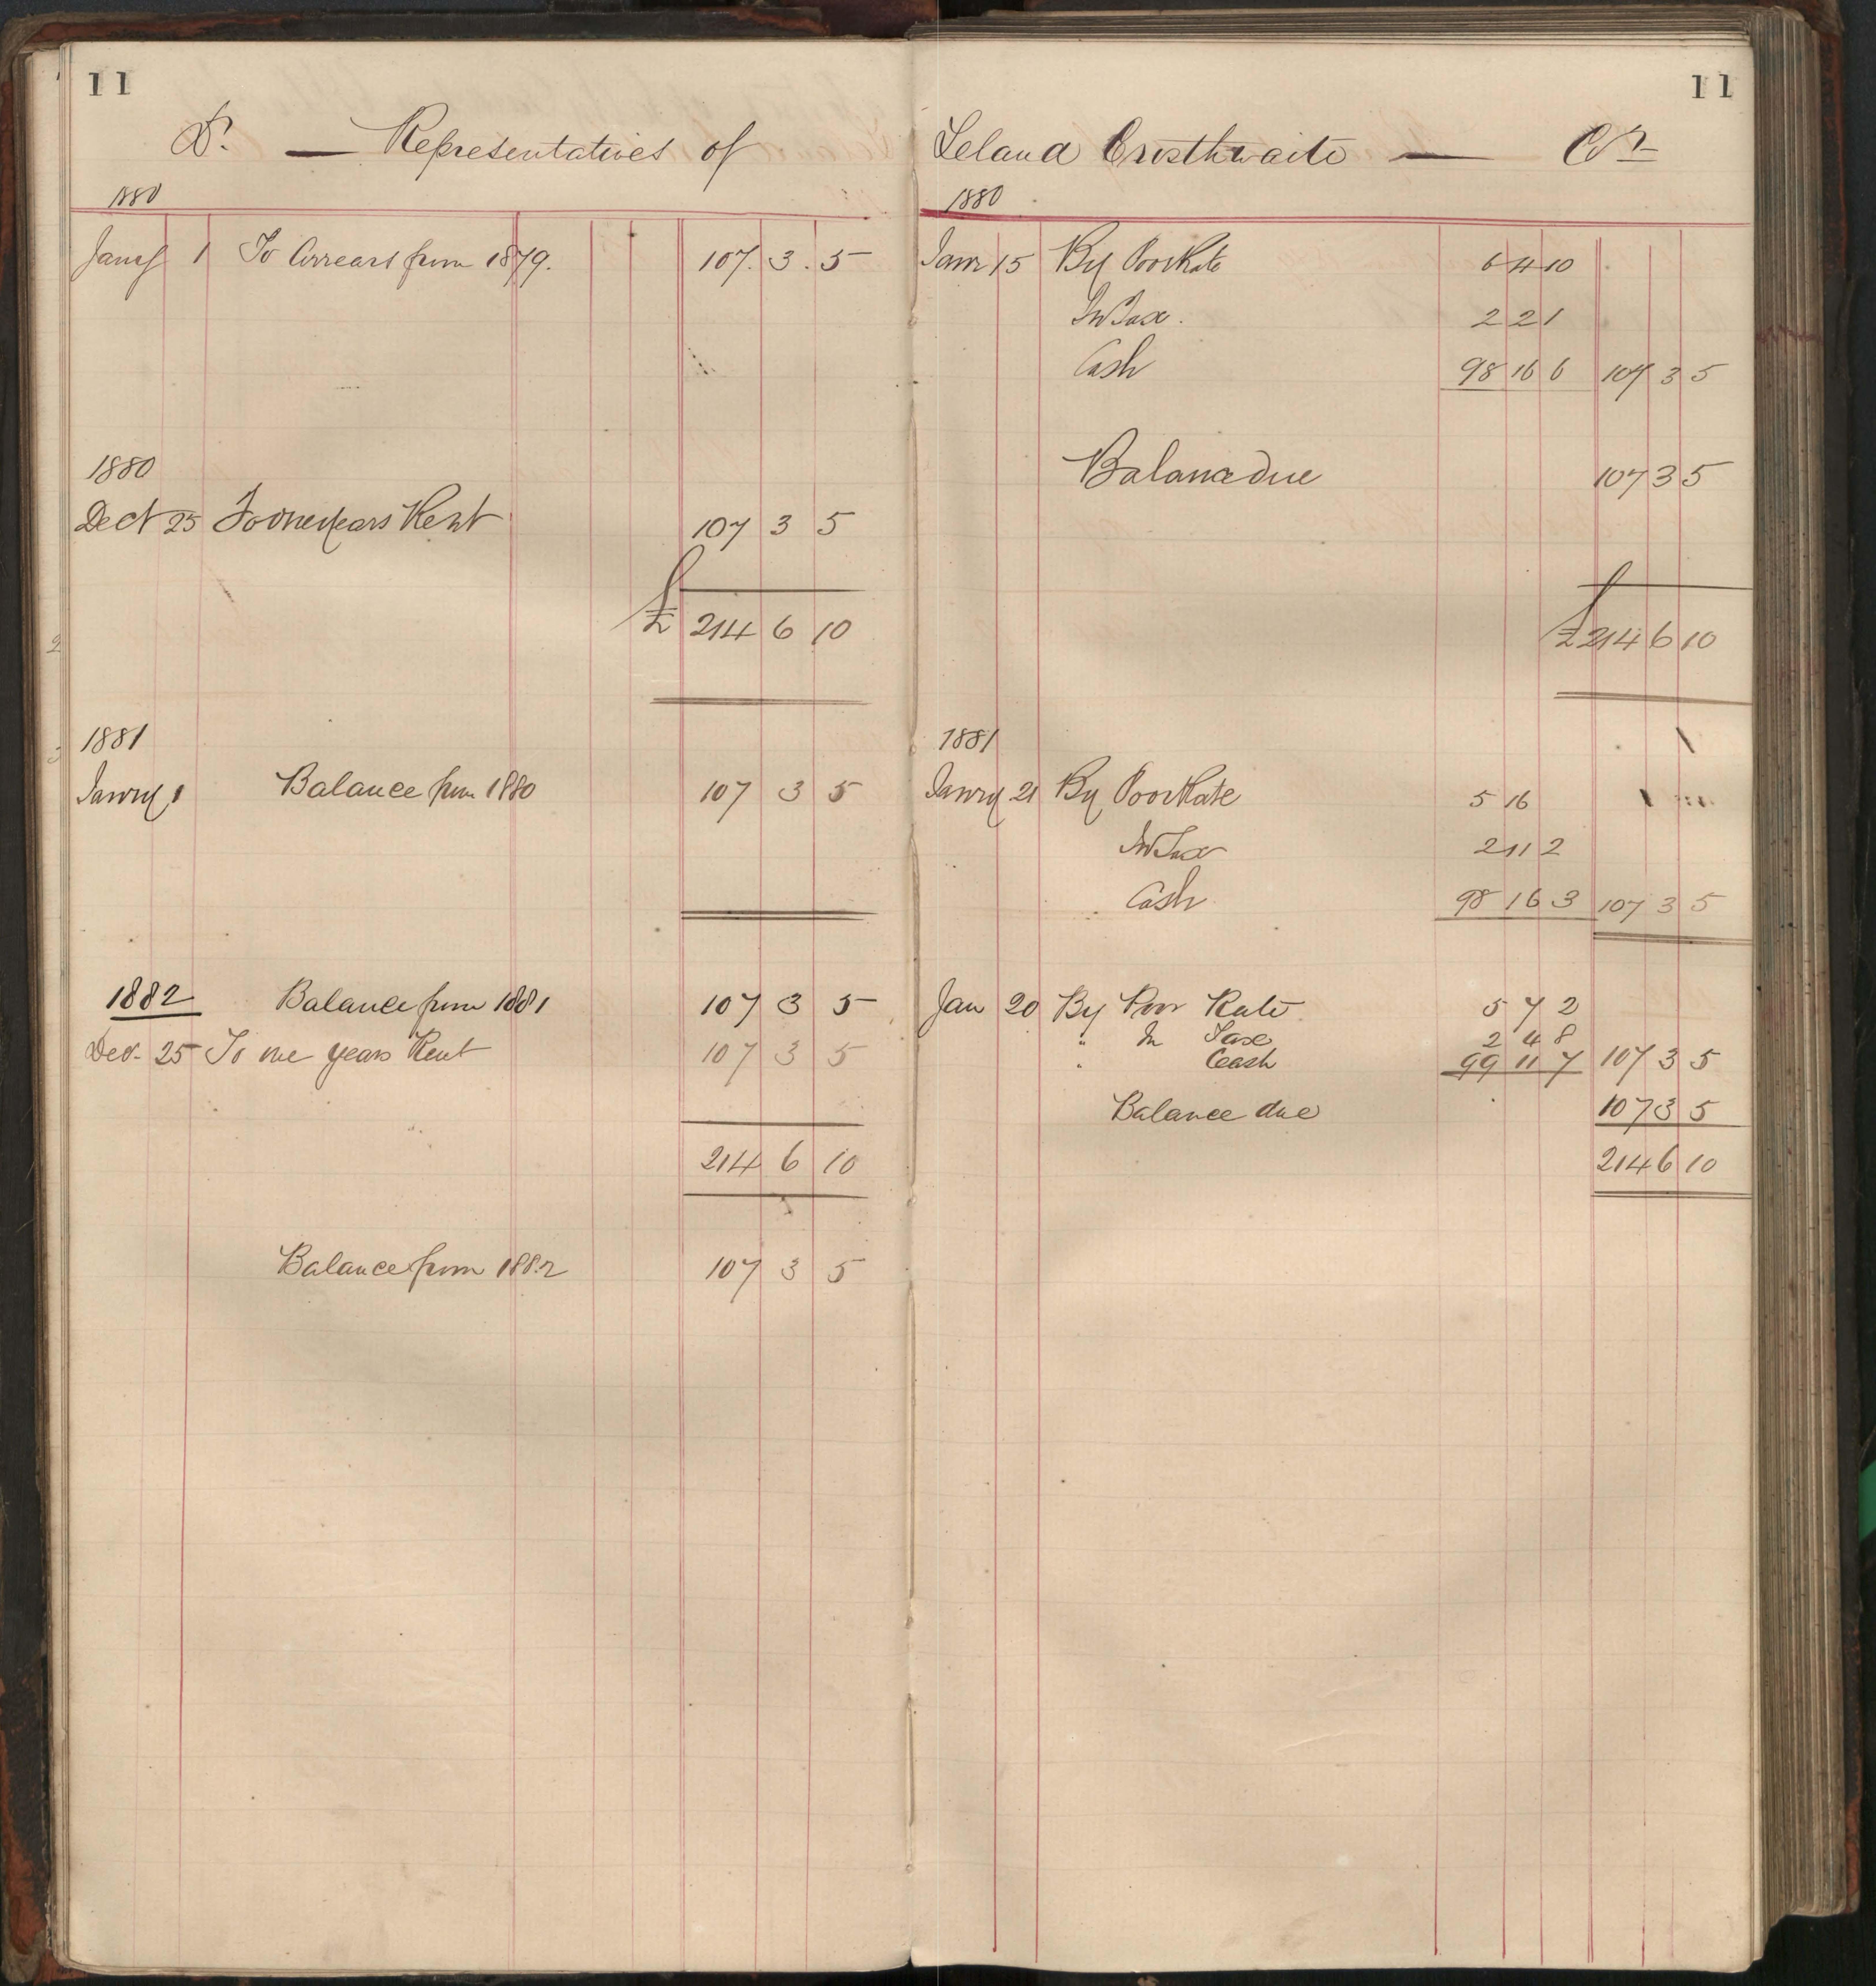 11
Dr. — Representatives of
1880
Jany 1 To Arrears from 1879. 107. 3. 5
1880
Decr 25 To one years Rent 107 3 5
£ 214 6 10
1881
Janry 1 Balance from 1880 107 3 5
1882 Balance from 1881 107 3 5
Decr. 25 To one years Rent 107 3 5
214 6 10
Balance from 1882 107 3 5
11
Leland Crosthwaite — Cr
1880
Janr 15 By Poor Rate 6 4 10
In Tax. 2 2 1
Cash 98 16 6 107 3 5
Balance due 107 3 5
£ 214 6 10
1881
Janry 21 By Poor Rate 5 16
In Tax 2 11 2
Cash 98 16 3 107 3 5
Jan 20 By Poor Rate 5 7 2
" In Taxe 2 4 8
" Ceash 99 11 7 107 3 5
Balance due 107 3 5
214 6 10